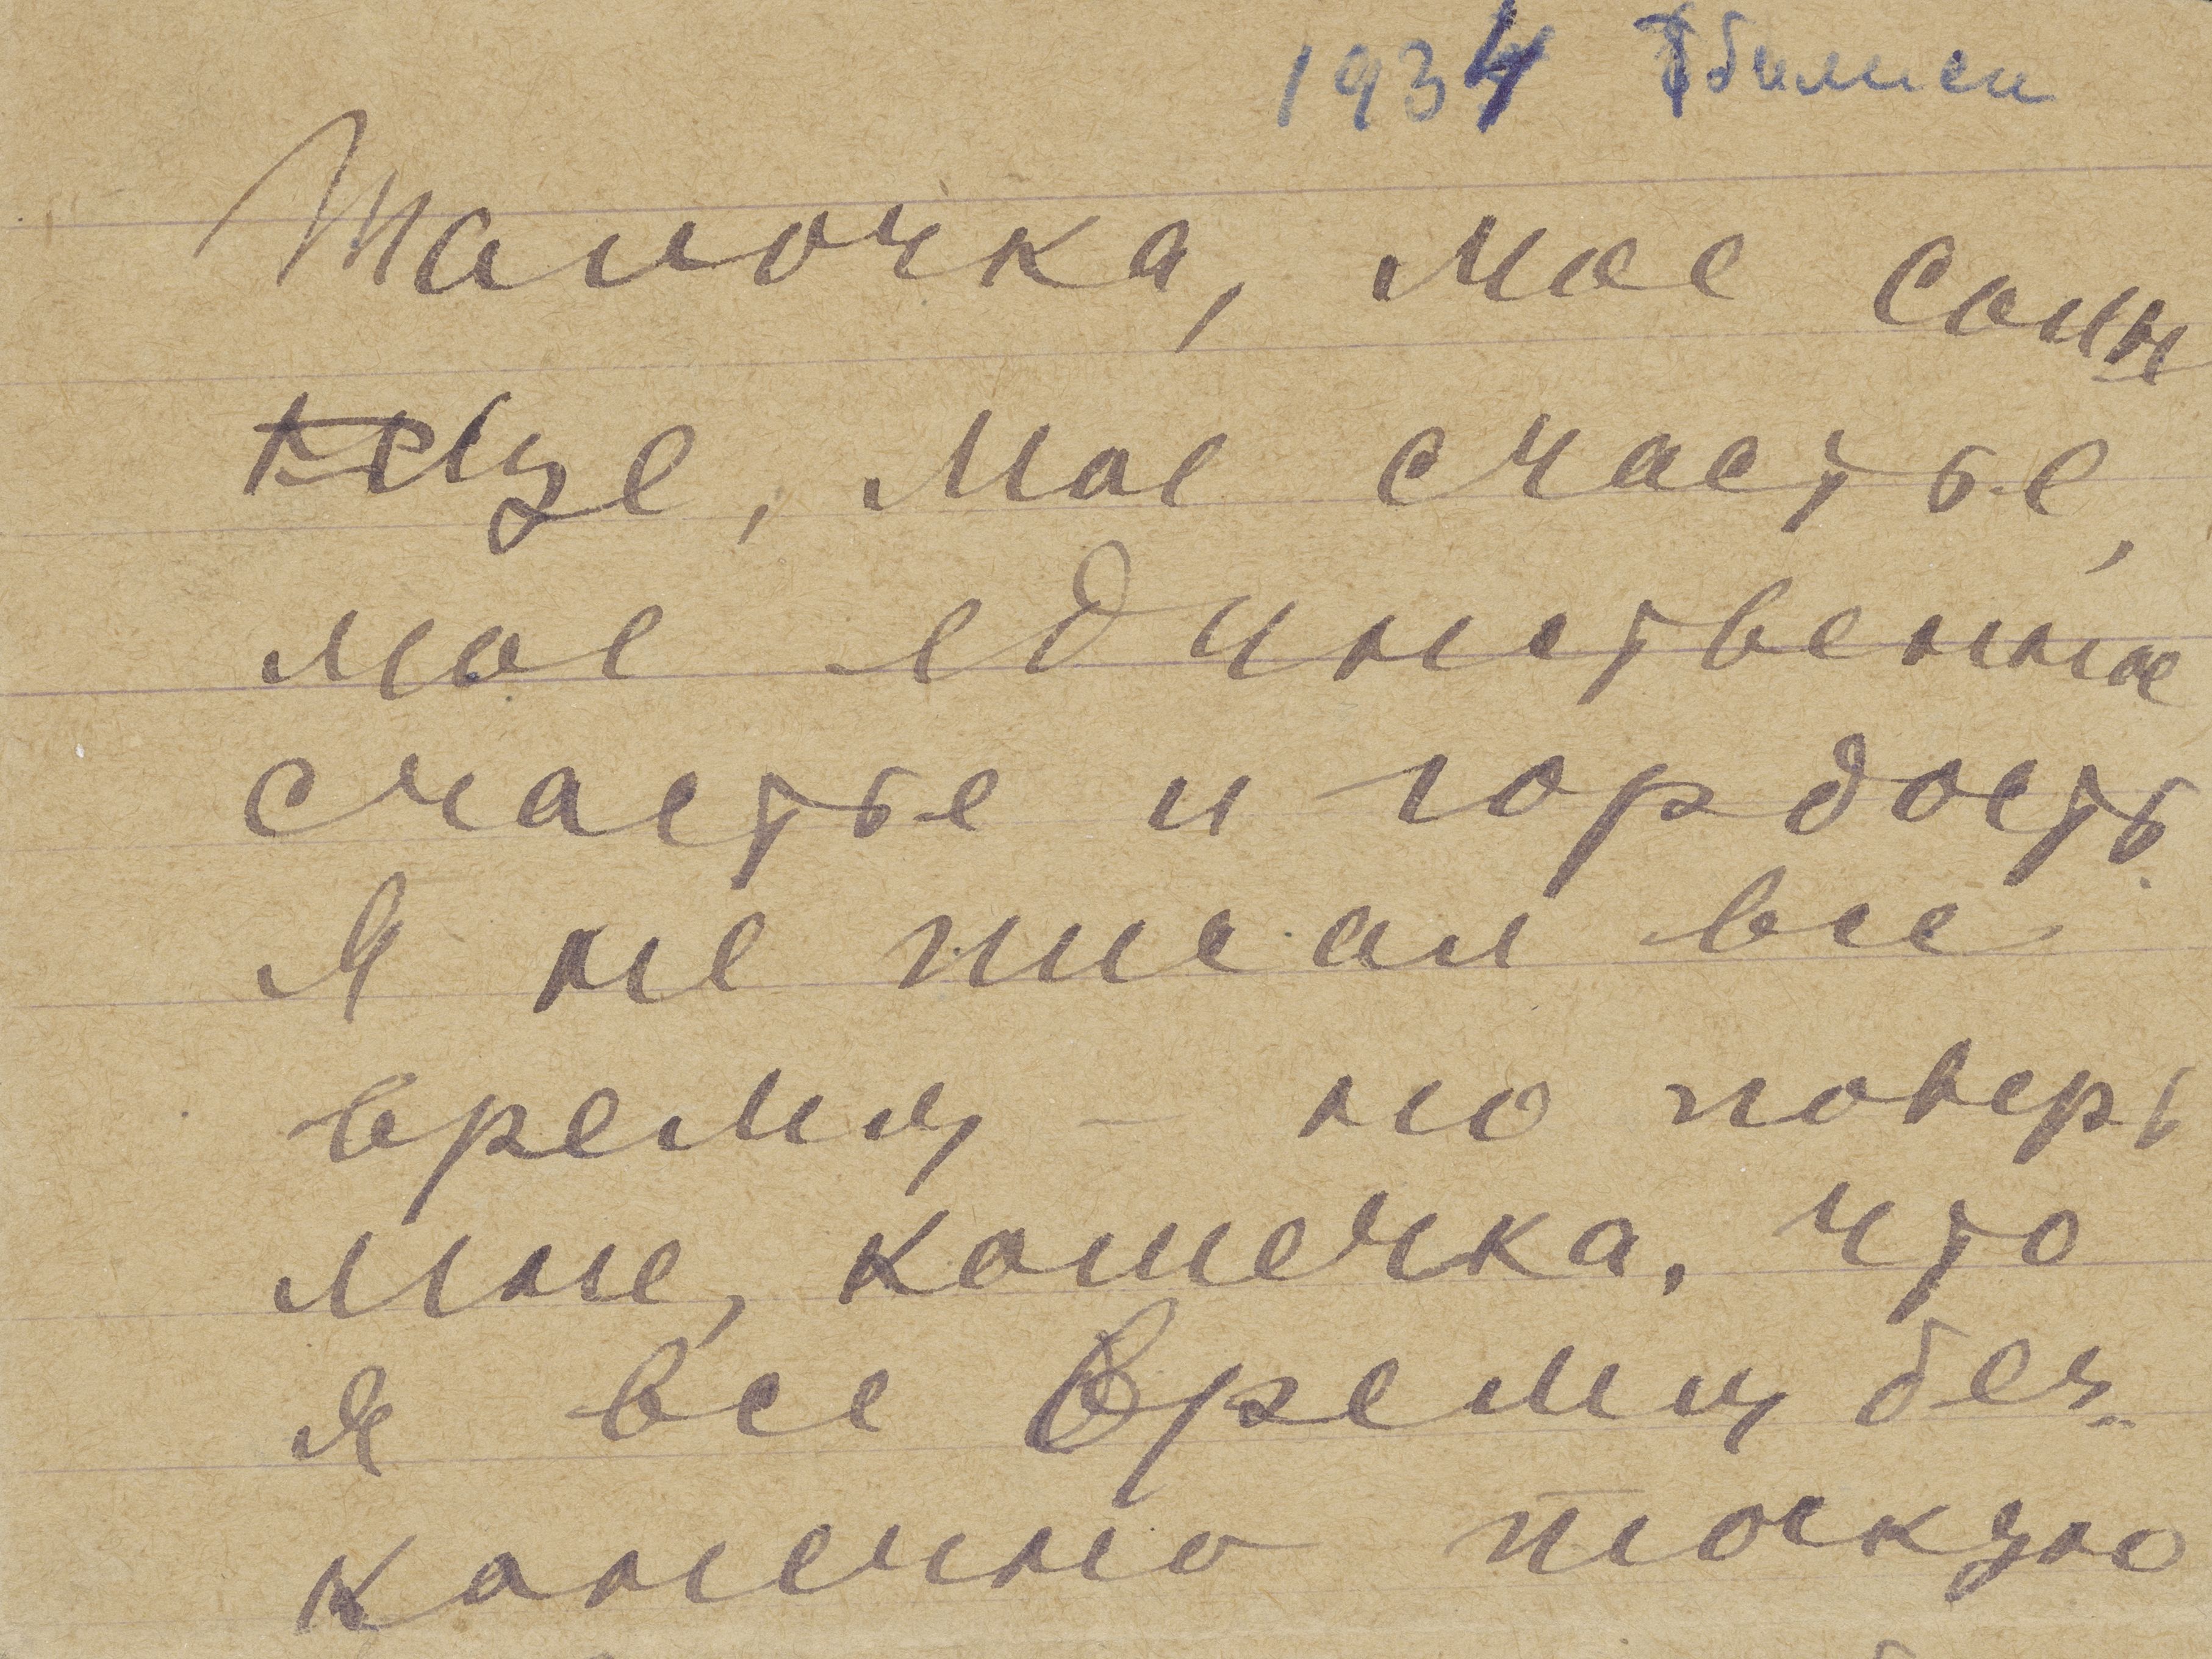 1934 Тбилиси
Талочка, мое солн
це, мое счастье,
мое единственное
счастье и гордость.
Я не писал все
время - но поверь
мне, кошечка, что
я все время бес-
конечно тоскую